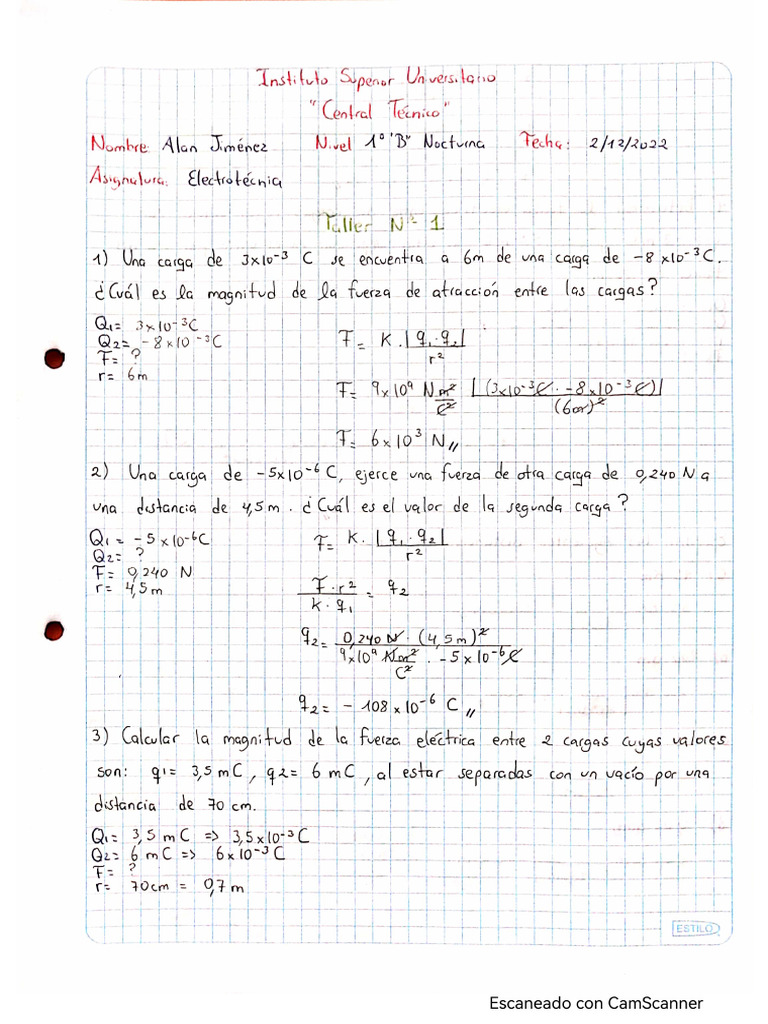 Instituto Superior Universitario
"Central Técnico"
Nombre: Alan Jiménez Nivel 1º "B" Nocturna Fecha: 2/12/2022
Asignatura: Electrotécnia
Taller Nº 1
1) Una carga de 3x10⁻³ C se encuentra a 6m de una carga de -8x10⁻³C.
¿Cuál es la magnitud de la fuerza de atracción entre las cargas?
Q1= 3x10⁻³C
Q2= -8x10⁻³C
F= ?
r= 6m
F= K.|q₁.q₂| / r²
F= 9x10⁹ N m²/C² |(3x10⁻³C . -8x10⁻³C)| / (6m)²
F= 6x10³ N//
2) Una carga de -5x10⁻⁶ C, ejerce una fuerza de otra carga de 0,240 N a
una distancia de 4,5m. ¿Cuál es el valor de la segunda carga?
Q1= -5x10⁻⁶C
Q2= ?
F= 0,240 N
r= 4,5m
F= K.|q₁.q₂| / r²
F.r² / k.q₁ = q₂
q₂= 0,240 N.(4,5m)² / 9x10⁹ Nm²/C² . -5x10⁻⁶C
q₂= -108x10⁻⁶ C//
3) Calcular la magnitud de la fuerza eléctrica entre 2 cargas cuyas valores
son: q1= 3,5 mC, q2= 6 mC, al estar separadas con un vacío por una
distancia de 70 cm.
Q1= 3,5 mC => 3,5x10⁻³C
Q2= 6 mC => 6x10⁻³C
F= ?
r= 70cm = 0,7m
ESTILO
Escaneado con CamScanner